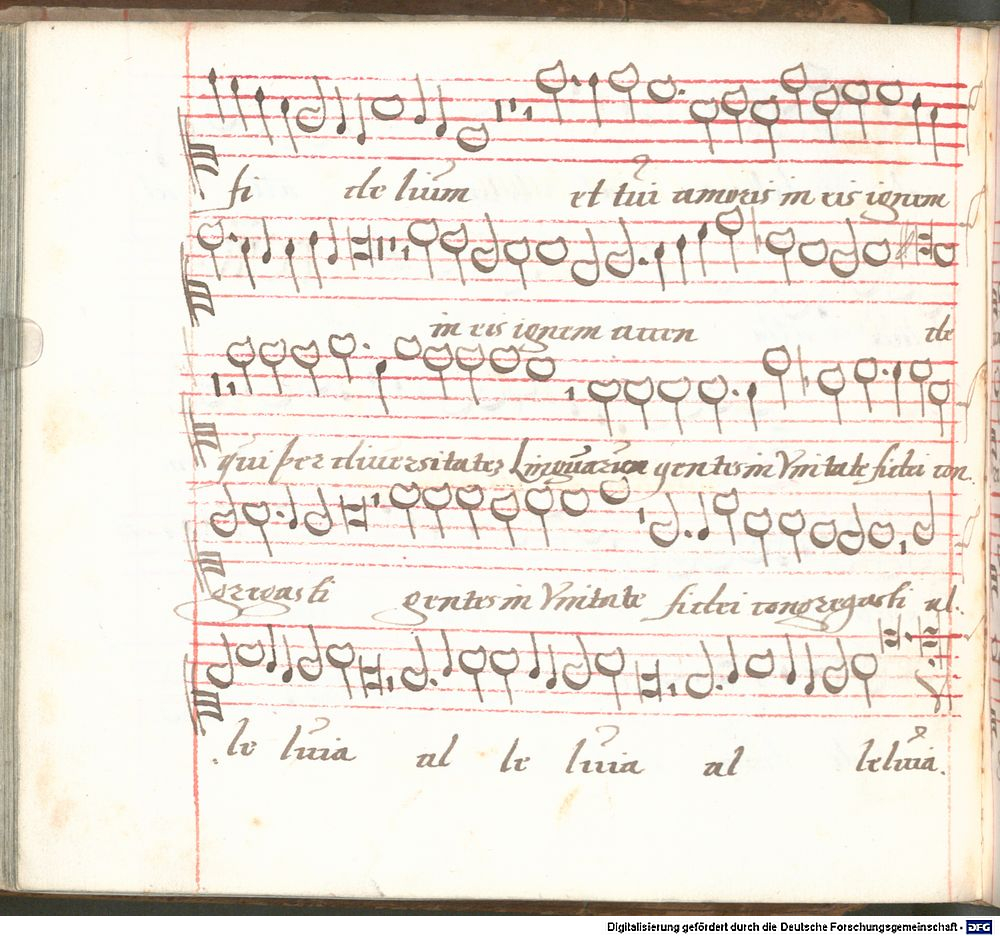 fi de lium et tui amoris in eis ignem
in eis ignem accen de
qui per diversitates Linguarum gentes in Vnitate fidei con
gregasti gentes in Vnitate fidei congregasti al.
le luia al le luia al leluia.
Digitalisierung gefördert durch die Deutsche Forschungsgemeinschaft - DFG